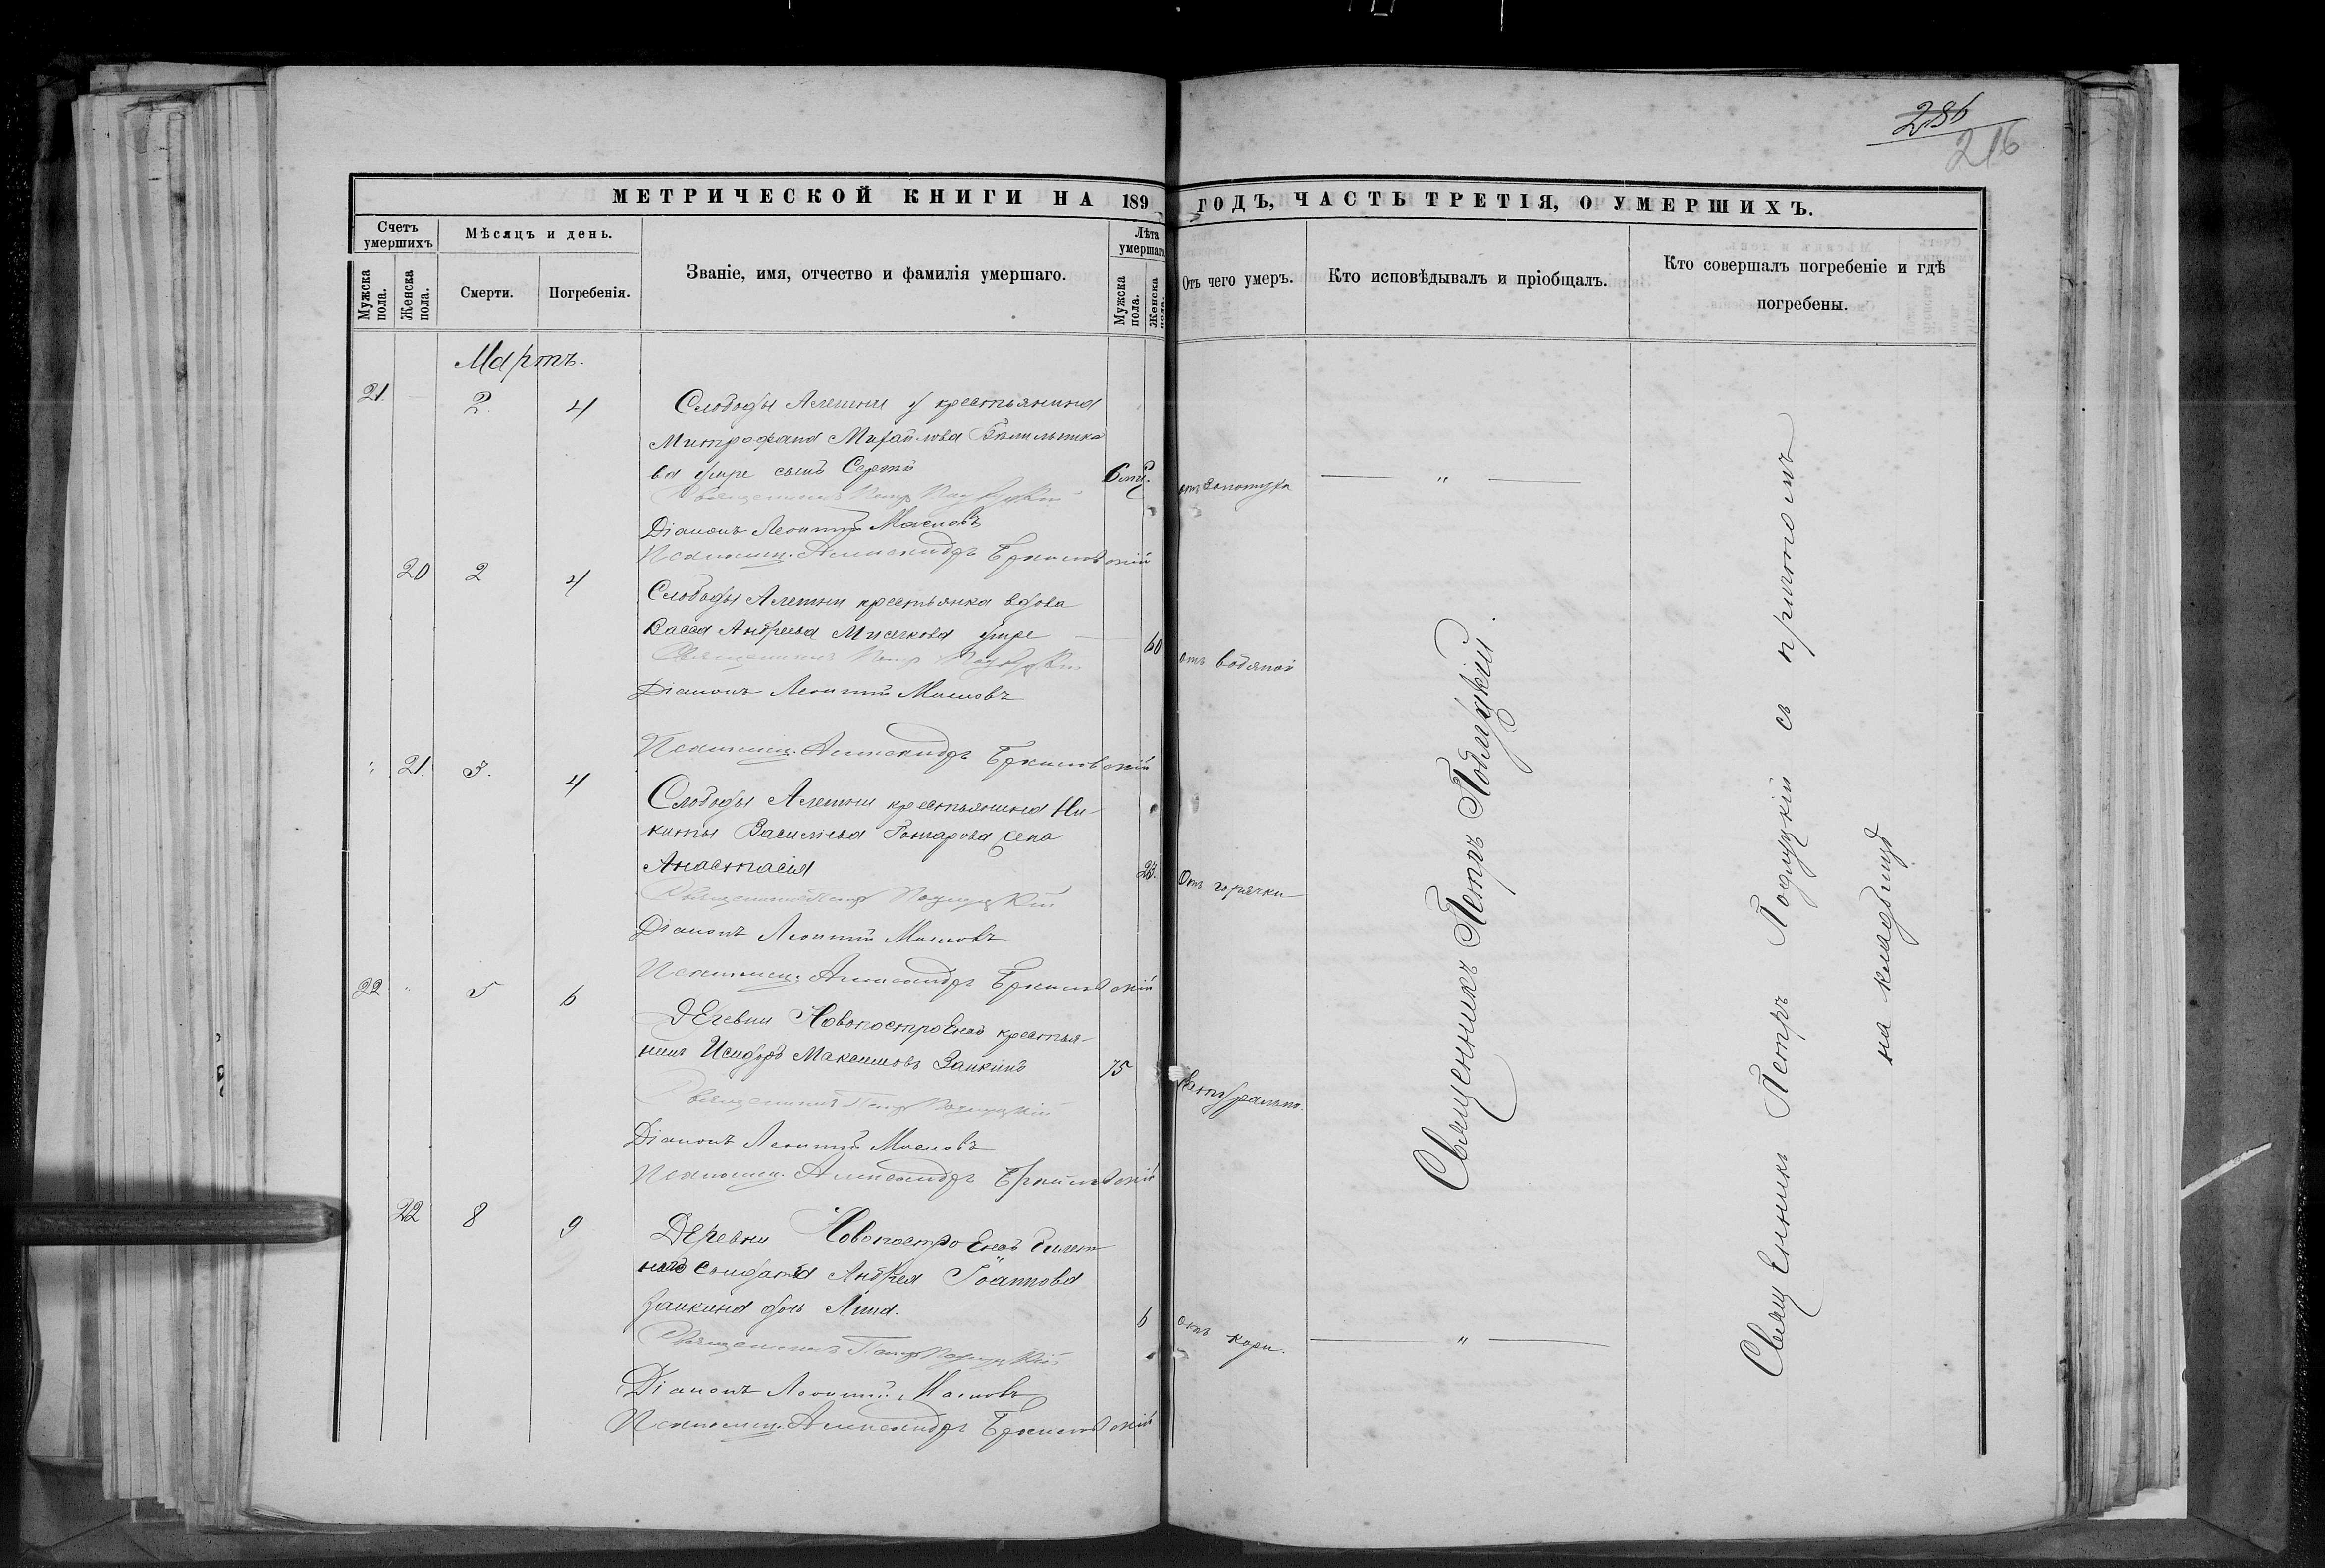 286
216
МЕТРИЧЕСКОЙ КНИГИ НА 189 ГОДЪ, ЧАСТЬ ТРЕТІЯ, О УМЕРШИХЪ.
Счетъ умершихъ
Мѣсяцъ и день.
Званіе, имя, отчество и фамилія умершаго.
Лѣта умершаго
Отъ чего умеръ.
Кто исповѣдывалъ и пріобщалъ.
Кто совершалъ погребеніе и гдѣ
погребены.
Мужска пола.
Женска пола.
Смерти.
Погребенія.
Мужска пола.
Женска пола.
Мартъ.
21. — 2. 4
Слободы Алешни у крестьянина
Митрофана Михайлова
ва умре сынъ Сергій
отъ золотухи — " —
Священникъ Петръ Подлуцкій
Діаконъ Леонтій Масловъ
Псаломщ. Александръ
20 2 4
Слободы Алешни крестьянка вдова
Васса Андреева Мисячкова умре 60 отъ водяной
Священникъ Петръ Подлуцкій
Діаконъ Леонтій Масловъ
Псаломщ. Александръ
21. 3. 4
Слободы Алешни крестьянина Ни-
киты Васильева Гончарова жена
Анастасія 23. Отъ горячки
Священникъ Петръ Подлуцкій
Діаконъ Леонтій Масловъ
Псаломщ. Александръ
22 " 5 6
Деревни Новопостроеной крестья-
нинъ Исидоръ Максимовъ Заикинъ 75 натурально.
Священникъ Петръ Подлуцкій
Діаконъ Леонтій Масловъ
Псаломщ. Александръ
22 8 9
Деревни Новопостроеной билет-
наго солдата Андрея Іоаннова
Заикина дочь Анна. 6 отъ кори. — " —
Священникъ Петръ Подлуцкій
Діаконъ Леонтій Масловъ
Псаломщ. Александръ
Священникъ Петръ Подлуцкій.
Священникъ Петръ Подлуцкій съ причтомъ
на кладбищѣ